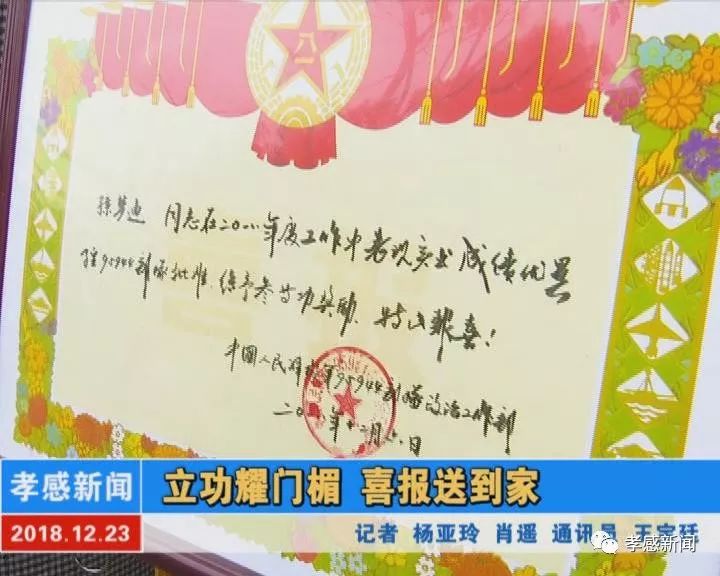 八一
同志在二〇一八年度工作中表现突出成绩优异
经95944部队批准，给予叁等功奖励，特此报喜！
中国人民解放军95944部队政治工作部
二〇一八年十二月 日
孝感新闻
立功耀门楣 喜报送到家
2018.12.23
记者 杨亚玲 肖遥 通讯员 王宇廷
孝感新闻